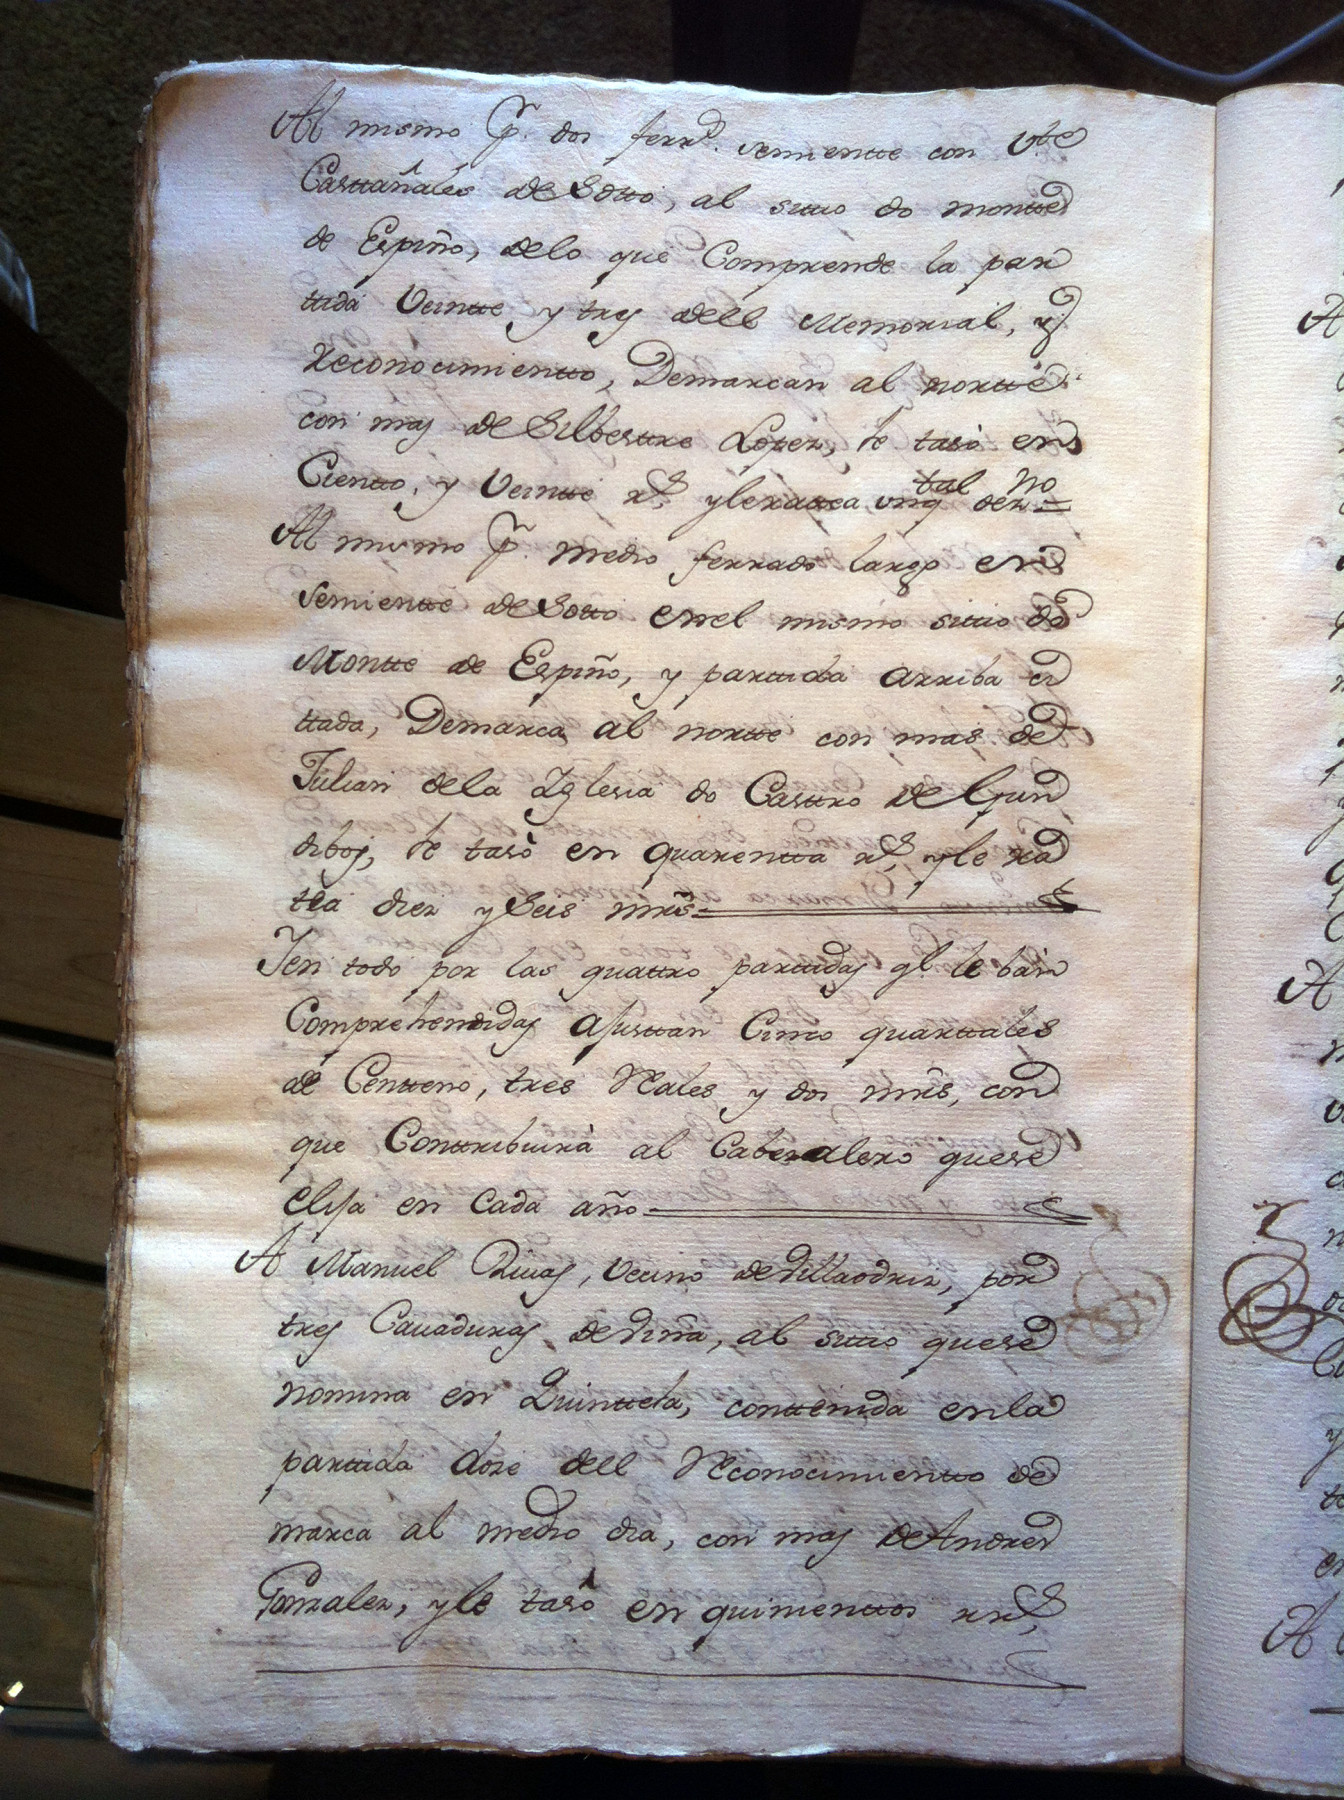 Al mismo p.r dos ferr.s semientte con v.te
Casttañales de Sotto, al sitio do montte
de Espiño, delo que Comprende la par
ttida Veintte y tres dell Memorial, y
Reconocimientto, Demarcan al nortte
con mas de Silbesttre Lopez, le tasó en
Cientto, y Veintte r.s y le ratea un q.tal den.o =
Al mismo p.r medio ferrado largo en
semientte de Sotto en el mismo sittio do
Montte de Espiño, y parttida arriba ci
ttada, Demarca al nortte con mas de
Julian dela Iglesia do Casttro de Gun
dibos, le tasò en quarentta r.s, y le ra
tea diez y Seis mrs.
Y en todo por las quattro parttidas q.e le bàn
Comprehendidas ajusttan Cinco quarttales
de Centteno, tres Reales y dos mrs, con
que Conttribuirà al Cabezalero que se
elija en Cada año.
A Manuel Rivas, Vecino de Villaodriz, por
tres Cavaduras de viña, al sitio que se
nomina en Quinttela, conttenida en la
parttida doze dell Reconocimientto de
marca al medio dia, con mas de Andres
Gonzalez, y le tasò en quinienttos rr.s,
A
A
A